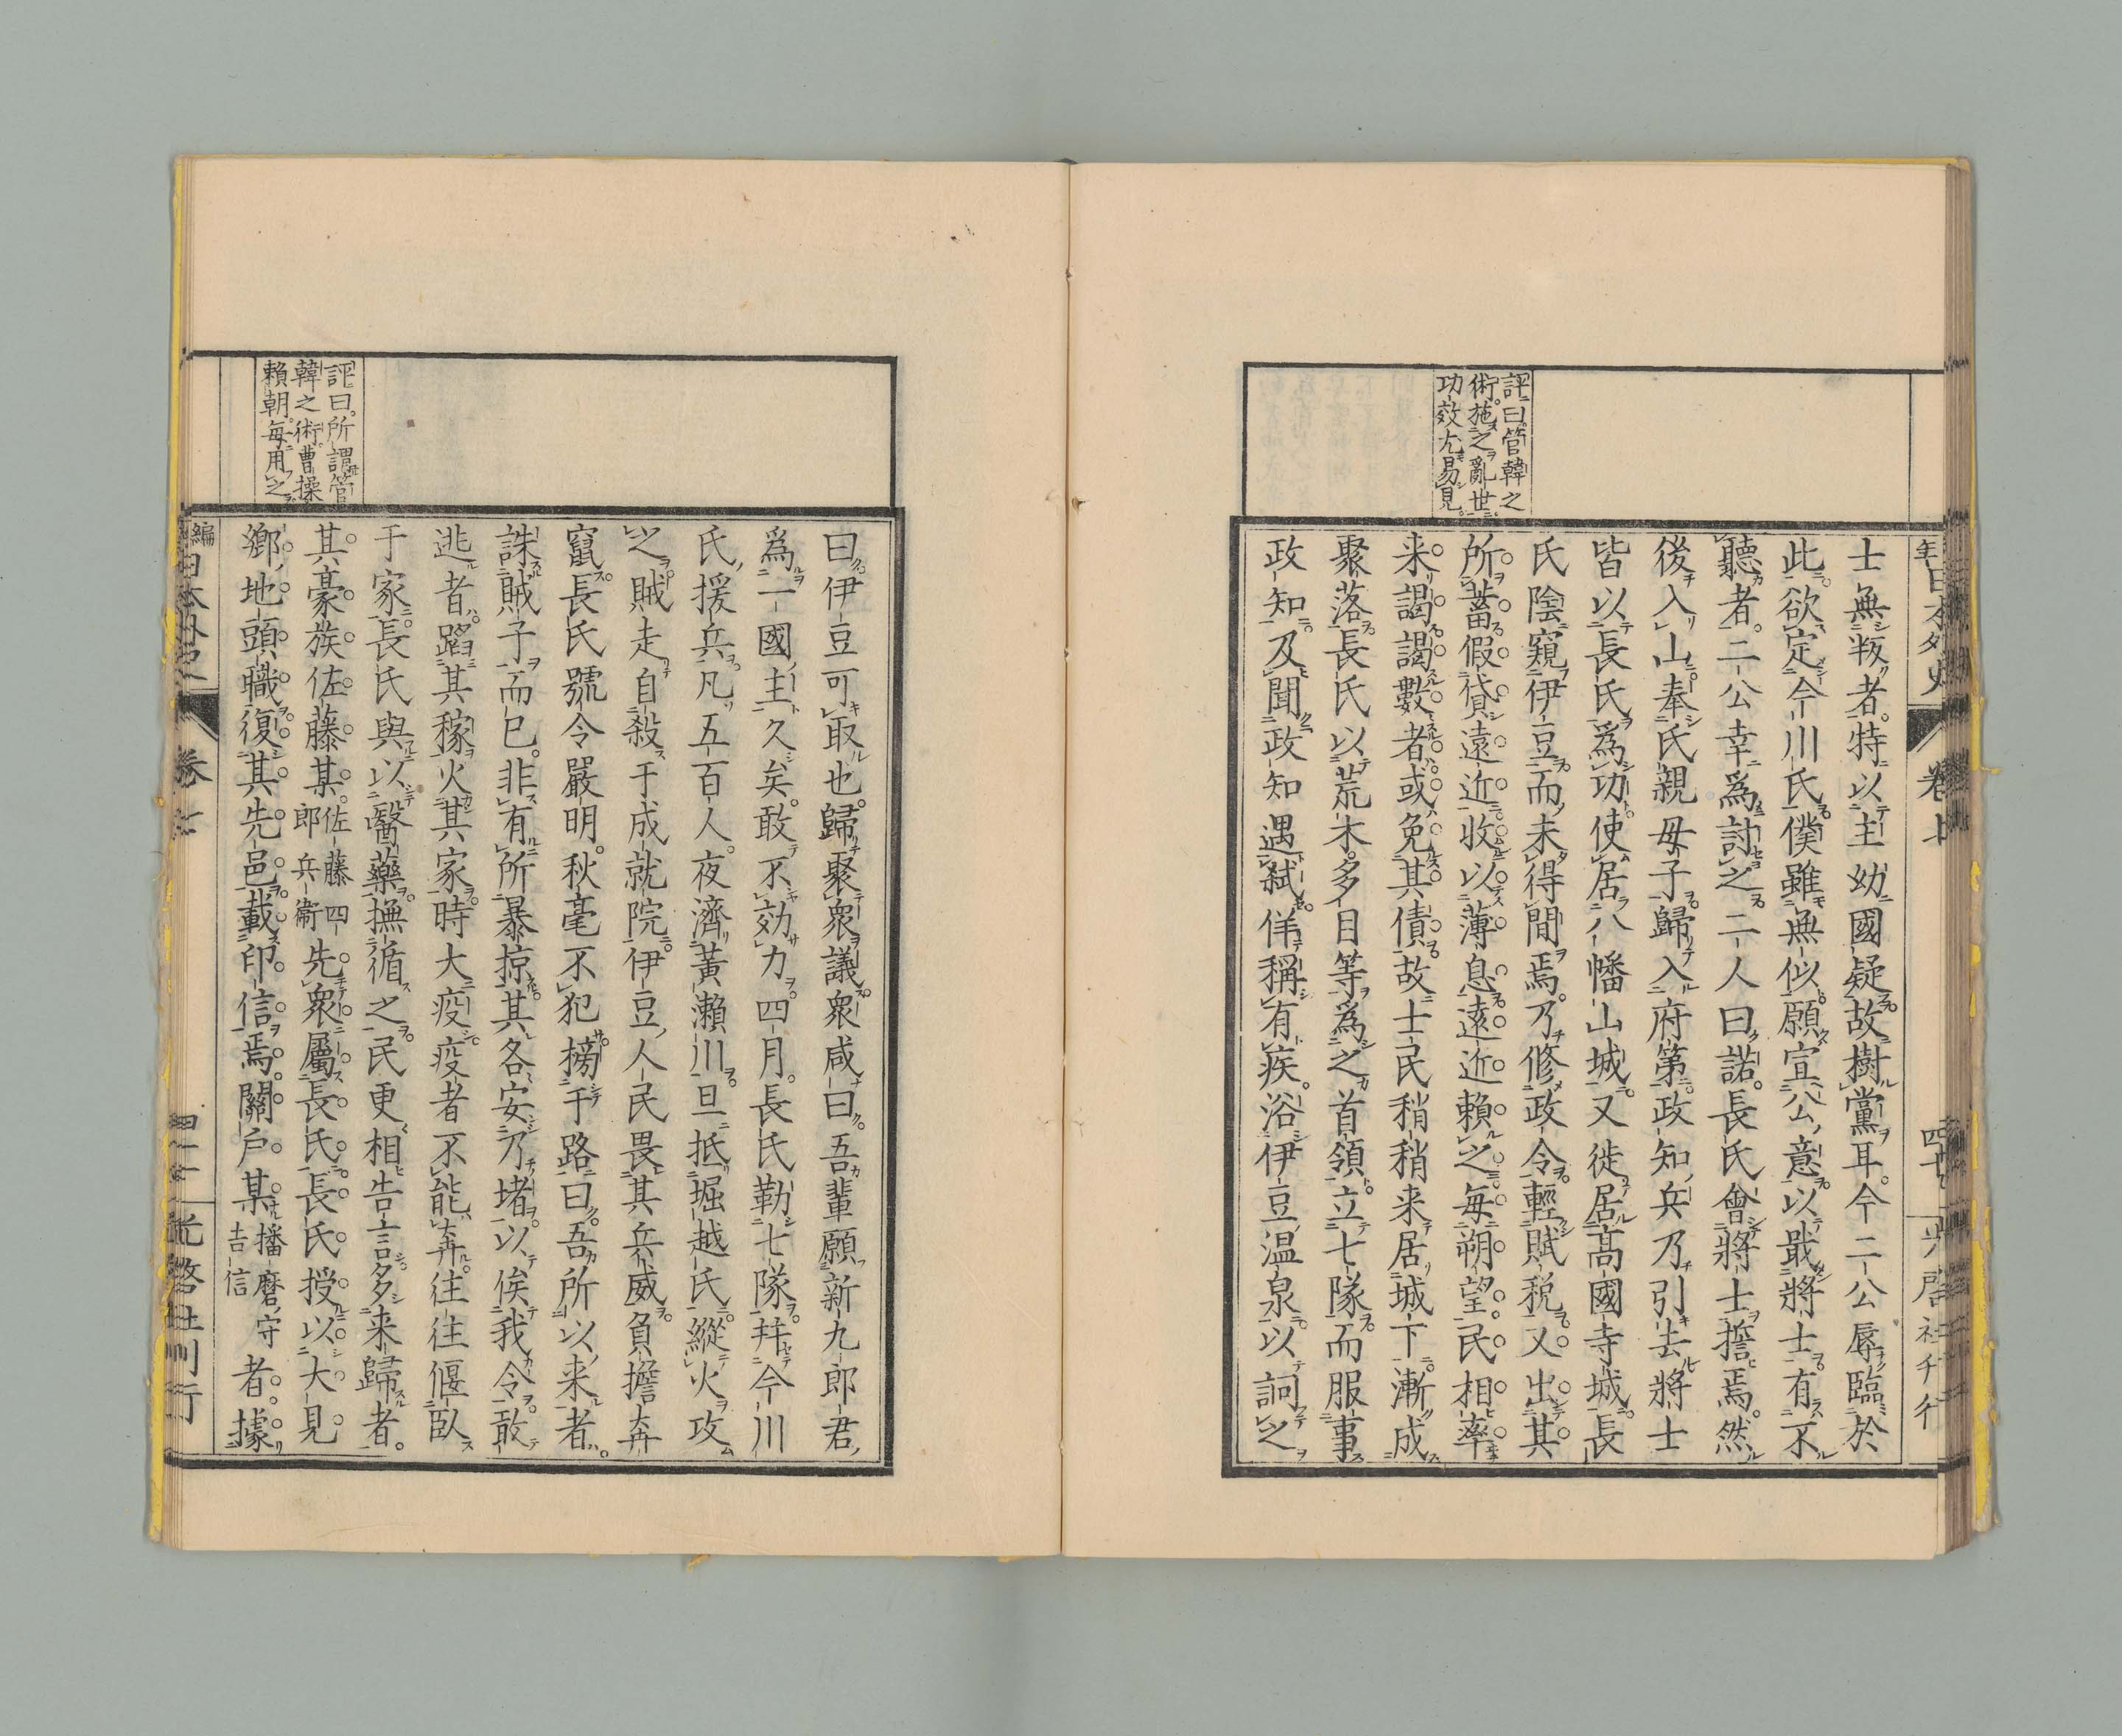 評曰管韓之
術施之亂世
功效尤易見
士無叛者。特以主幼國疑故樹黨耳。今二公辱臨於
此欲定今川氏。僕雖無似願宣公意以戢將士有不
聽者。二公幸爲討之。二人曰諾。長氏會將士擔焉。然
後入山奉氏親母子歸入府第。政知兵乃引去。將士
皆以長氏爲功。使居八幡山城。又徙居高國寺城。長
氏陰窺伊豆。而未得間焉。乃修政令。輕賦税。又出其
所蓄。假貸遠近。收以薄息。遠近賴之。每朔望。民相率
来謁。謁數者。或免其債。故士民稍稍来居城下。漸成
聚落。長氏以荒木。多目等爲之首領。立七隊而服事
政知。及聞政知遇弑。佯稱有疾。浴伊豆溫泉。以詗之
評曰所謂管
韓之術曹操
賴朝每用之
曰。伊豆可取也。歸聚衆議。衆咸曰。吾輩願新九郎君
爲一國主久矣。敢不効力。四月。長氏勒七隊。并今川
氏援兵。凡五百人。夜濟黃瀨川。旦抵堀越氏。縱火攻
之。賊走自殺于成就院。伊豆人民畏其兵威。負擔奔
竄。長氏號令嚴明。秋毫不犯。榜于路曰。吾所以来者。
誅賊子而已。非有所暴掠。其各安乃堵。以俟我令。敢
逃者。蹈其稼。火其家。時大疫。疫者不能奔。往往偃臥
于家。長氏與以醫藥。撫循之。民更相告言。多来歸者。
其豪族佐藤某。佐藤四郎兵衛先衆屬長氏。長氏授以大見
鄉地頭職。復其先邑。載印信焉。關戶某播磨守吉信者。據